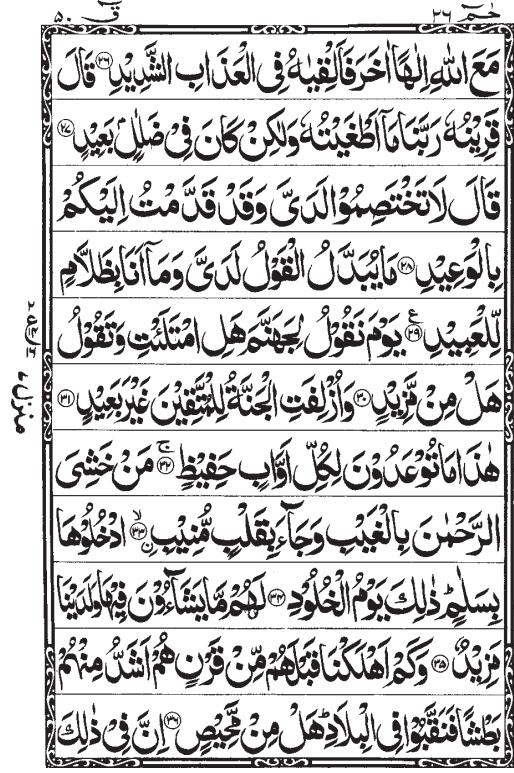 حٰمٓ ٢٦
قٓ ٥٠
مَعَ اللّٰهِ اِلٰهًا اٰخَرَ فَاَلْقِيٰهُ فِى الْعَذَابِ الشَّدِيْدِ ۝٢٦ قَالَ
قَرِيْنُهٗ رَبَّنَا مَاۤ اَطْغَيْتُهٗ وَلٰكِنْ كَانَ فِىْ ضَلٰلٍۭ بَعِيْدٍ ۝٢٧
قَالَ لَا تَخْتَصِمُوْا لَدَىَّ وَقَدْ قَدَّمْتُ اِلَيْكُمْ
بِالْوَعِيْدِ ۝٢٨ مَا يُبَدَّلُ الْقَوْلُ لَدَىَّ وَمَاۤ اَنَا بِظَلَّامٍ
لِّلْعَبِيْدِ ۝٢٩ ع يَوْمَ نَقُوْلُ لِجَهَنَّمَ هَلِ امْتَلَـْٔتِ وَتَقُوْلُ
هَلْ مِنْ مَّزِيْدٍ ۝٣٠ وَاُزْلِفَتِ الْجَنَّةُ لِلْمُتَّقِيْنَ غَيْرَ بَعِيْدٍ ۝٣١
هٰذَا مَا تُوْعَدُوْنَ لِكُلِّ اَوَّابٍ حَفِيْظٍ ۝٣٢ ج مَنْ خَشِىَ
الرَّحْمٰنَ بِالْغَيْبِ وَجَآءَ بِقَلْبٍ مُّنِيْبِ ۝٣٣ لا نِ ادْخُلُوْهَا
بِسَلٰمٍ ؕ ذٰلِكَ يَوْمُ الْخُلُوْدِ ۝٣٤ لَهُمْ مَّا يَشَآءُوْنَ فِيْهَا وَلَدَيْنَا
مَزِيْدٌ ۝٣٥ وَكَمْ اَهْلَكْنَا قَبْلَهُمْ مِّنْ قَرْنٍ هُمْ اَشَدُّ مِنْهُمْ
بَطْشًا فَنَقَّبُوْا فِى الْبِلَادِ ؕ هَلْ مِنْ مَّحِيْصٍ ۝٣٦ اِنَّ فِىْ ذٰلِكَ
منزل ٧